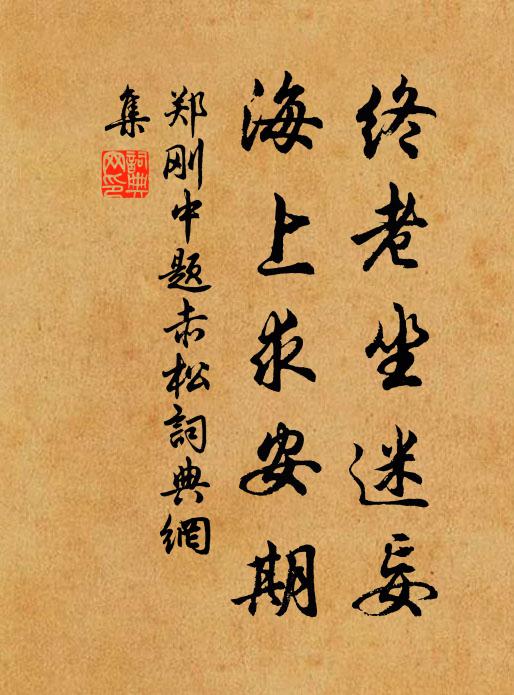 终老坐迷妄
海上求安期
郑刚中题赤松詞典網
集
詞典网印